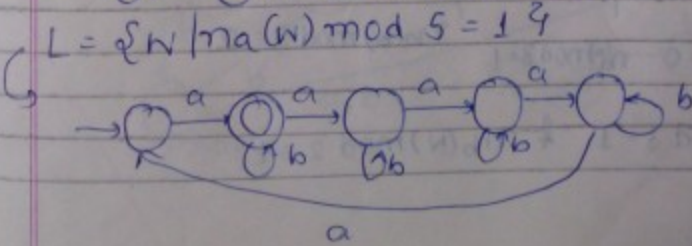 L = {W | na(W) mod 5 = 1}
a a a a
b b b b
a